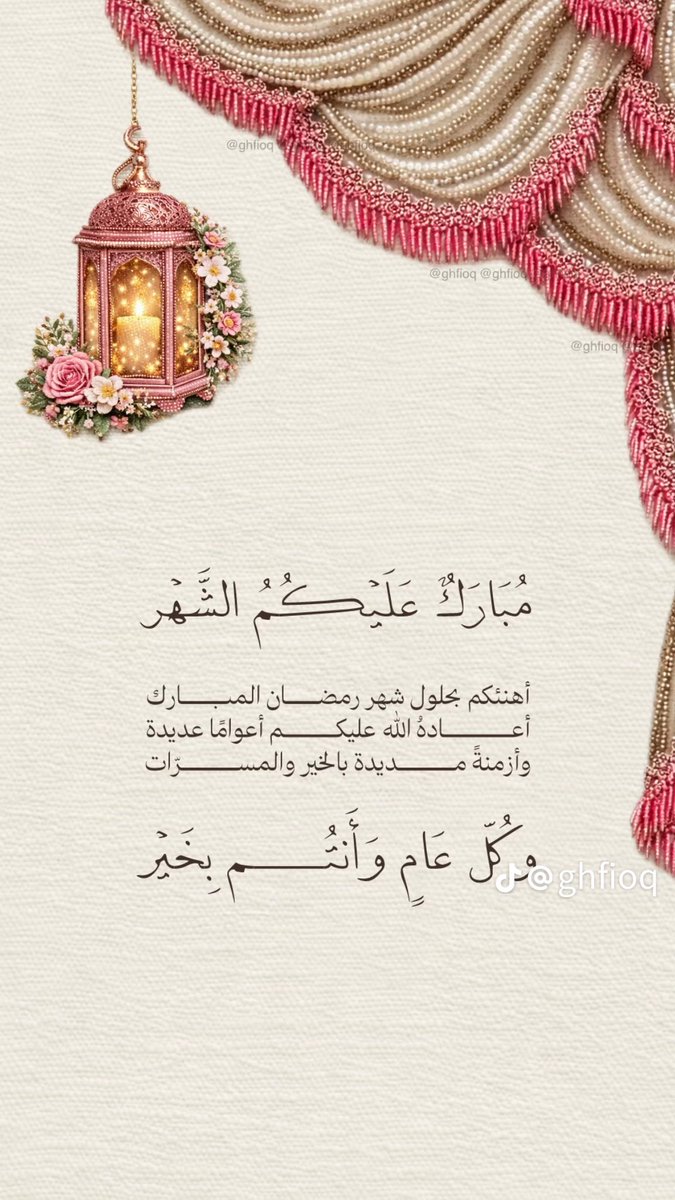 @ghfioq
@ghfioq @ghfioq
@ghfioq
مُبَارَكٌ عَلَيْكُمُ الشَّهْر
أهنئكم بحلول شهر رمضـــان المبـــارك
أعـــادهُ الله عليكـــم أعوامًا عديدة
وأزمنةً مـــديدة بالخير والمســـرّات
وكُلّ عَامٍ وَأَنتُـــم بِخَيْر
@ghfioq